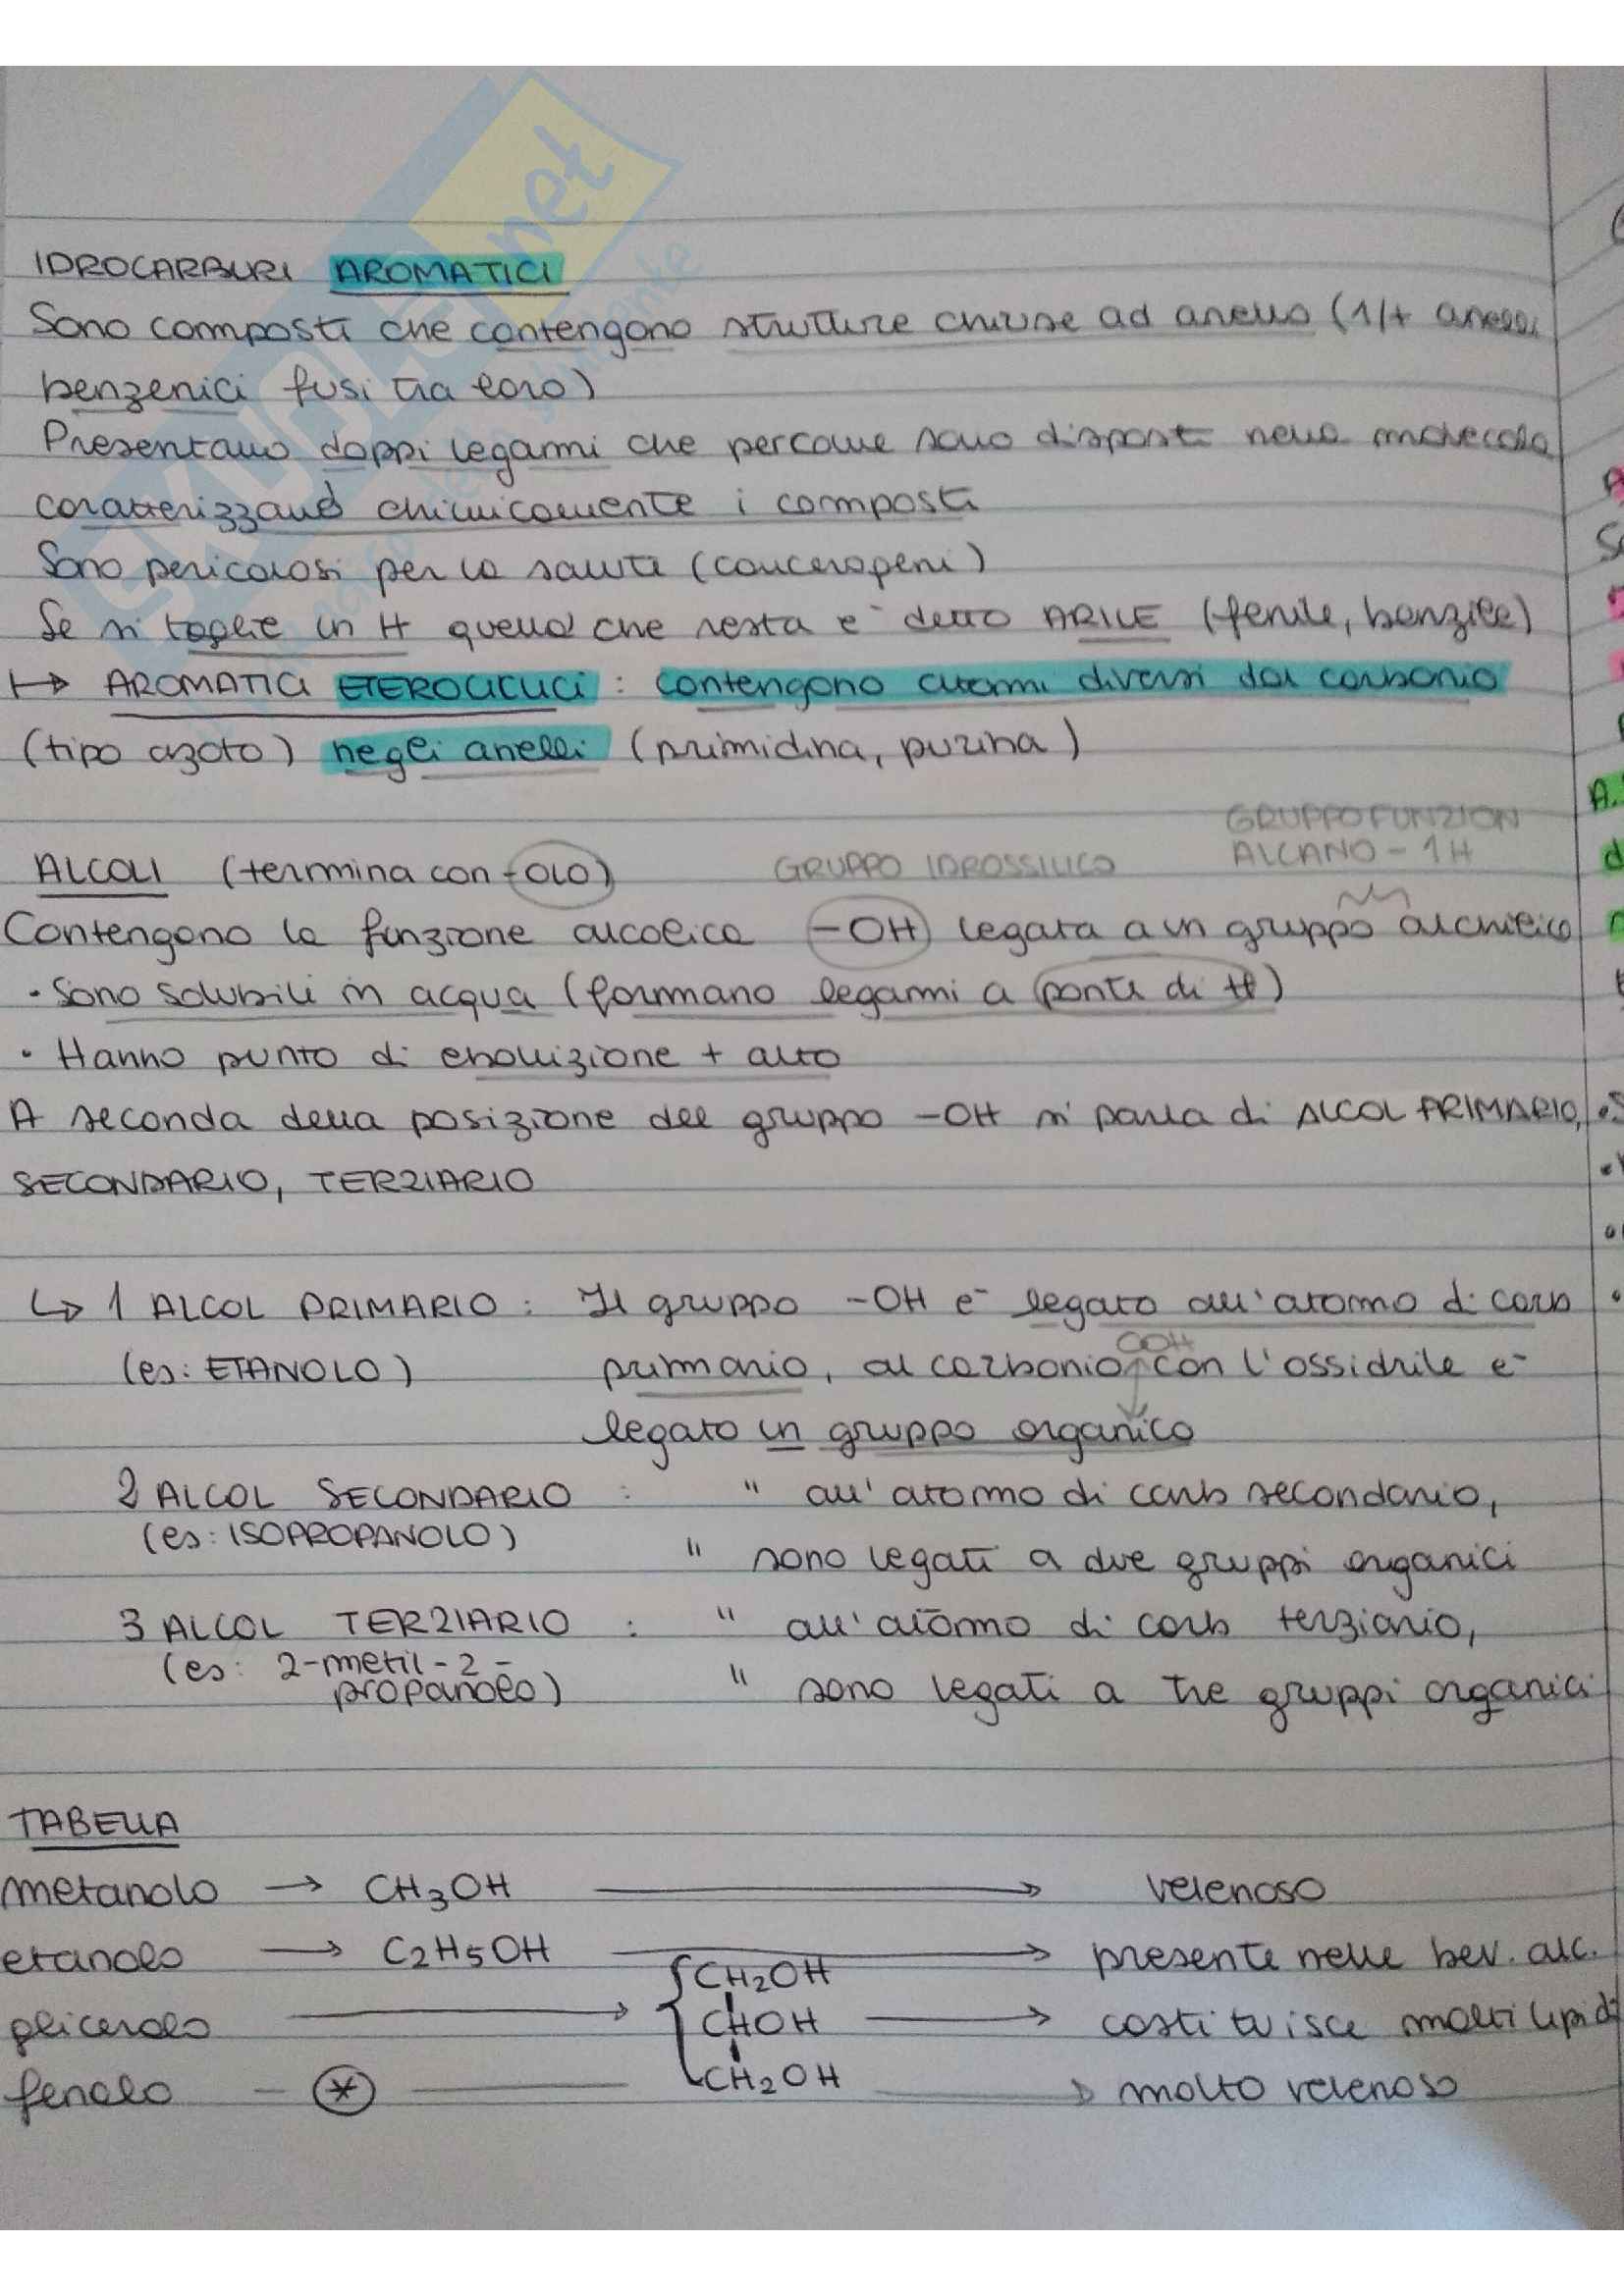 IDROCARBURI AROMATICI
Sono composti che contengono strutture chiuse ad anello (1/+ anelli
benzenici fusi tra loro)
Presentano doppi legami che per come sono disposti nella molecola
caratterizzano chimicamente i composti
Sono pericolosi per la salute (cancerogeni)
Se si toglie un H quello che resta e' detto ARILE (fenile, benzile)
↦ AROMATICI ETEROCICLICI : contengono atomi diversi dal carbonio
(tipo azoto) negli anelli (primidina, purina)
GRUPPO FUNZION
ALCOLI (termina con -OLO) GRUPPO IDROSSILICO ALCANO - 1H
Contengono la funzione alcolica -OH legata a un gruppo alchilico
· Sono solubili in acqua (formano legami a ponte di H)
· Hanno punto di ebollizione + alto
A seconda della posizione del gruppo -OH si parla di ALCOL PRIMARIO,
SECONDARIO, TERZIARIO
↳ 1 ALCOL PRIMARIO : Il gruppo -OH e' legato all'atomo di carb
(es: ETANOLO) primario, al carbonio con l'ossidrile e'
legato un gruppo organico
2 ALCOL SECONDARIO : " all'atomo di carb secondario,
(es: ISOPROPANOLO) " sono legati a due gruppi organici
3 ALCOL TERZIARIO : " all'atomo di carb terziario,
(es: 2-metil-2-
propanolo) " sono legati a tre gruppi organici
TABELLA
metanolo → CH3OH → velenoso
etanolo → C2H5OH → presente nelle bev. alc.
CH2OH
glicerolo → CHOH → costituisce molti lipidi
CH2OH
fenolo - * → molto velenoso